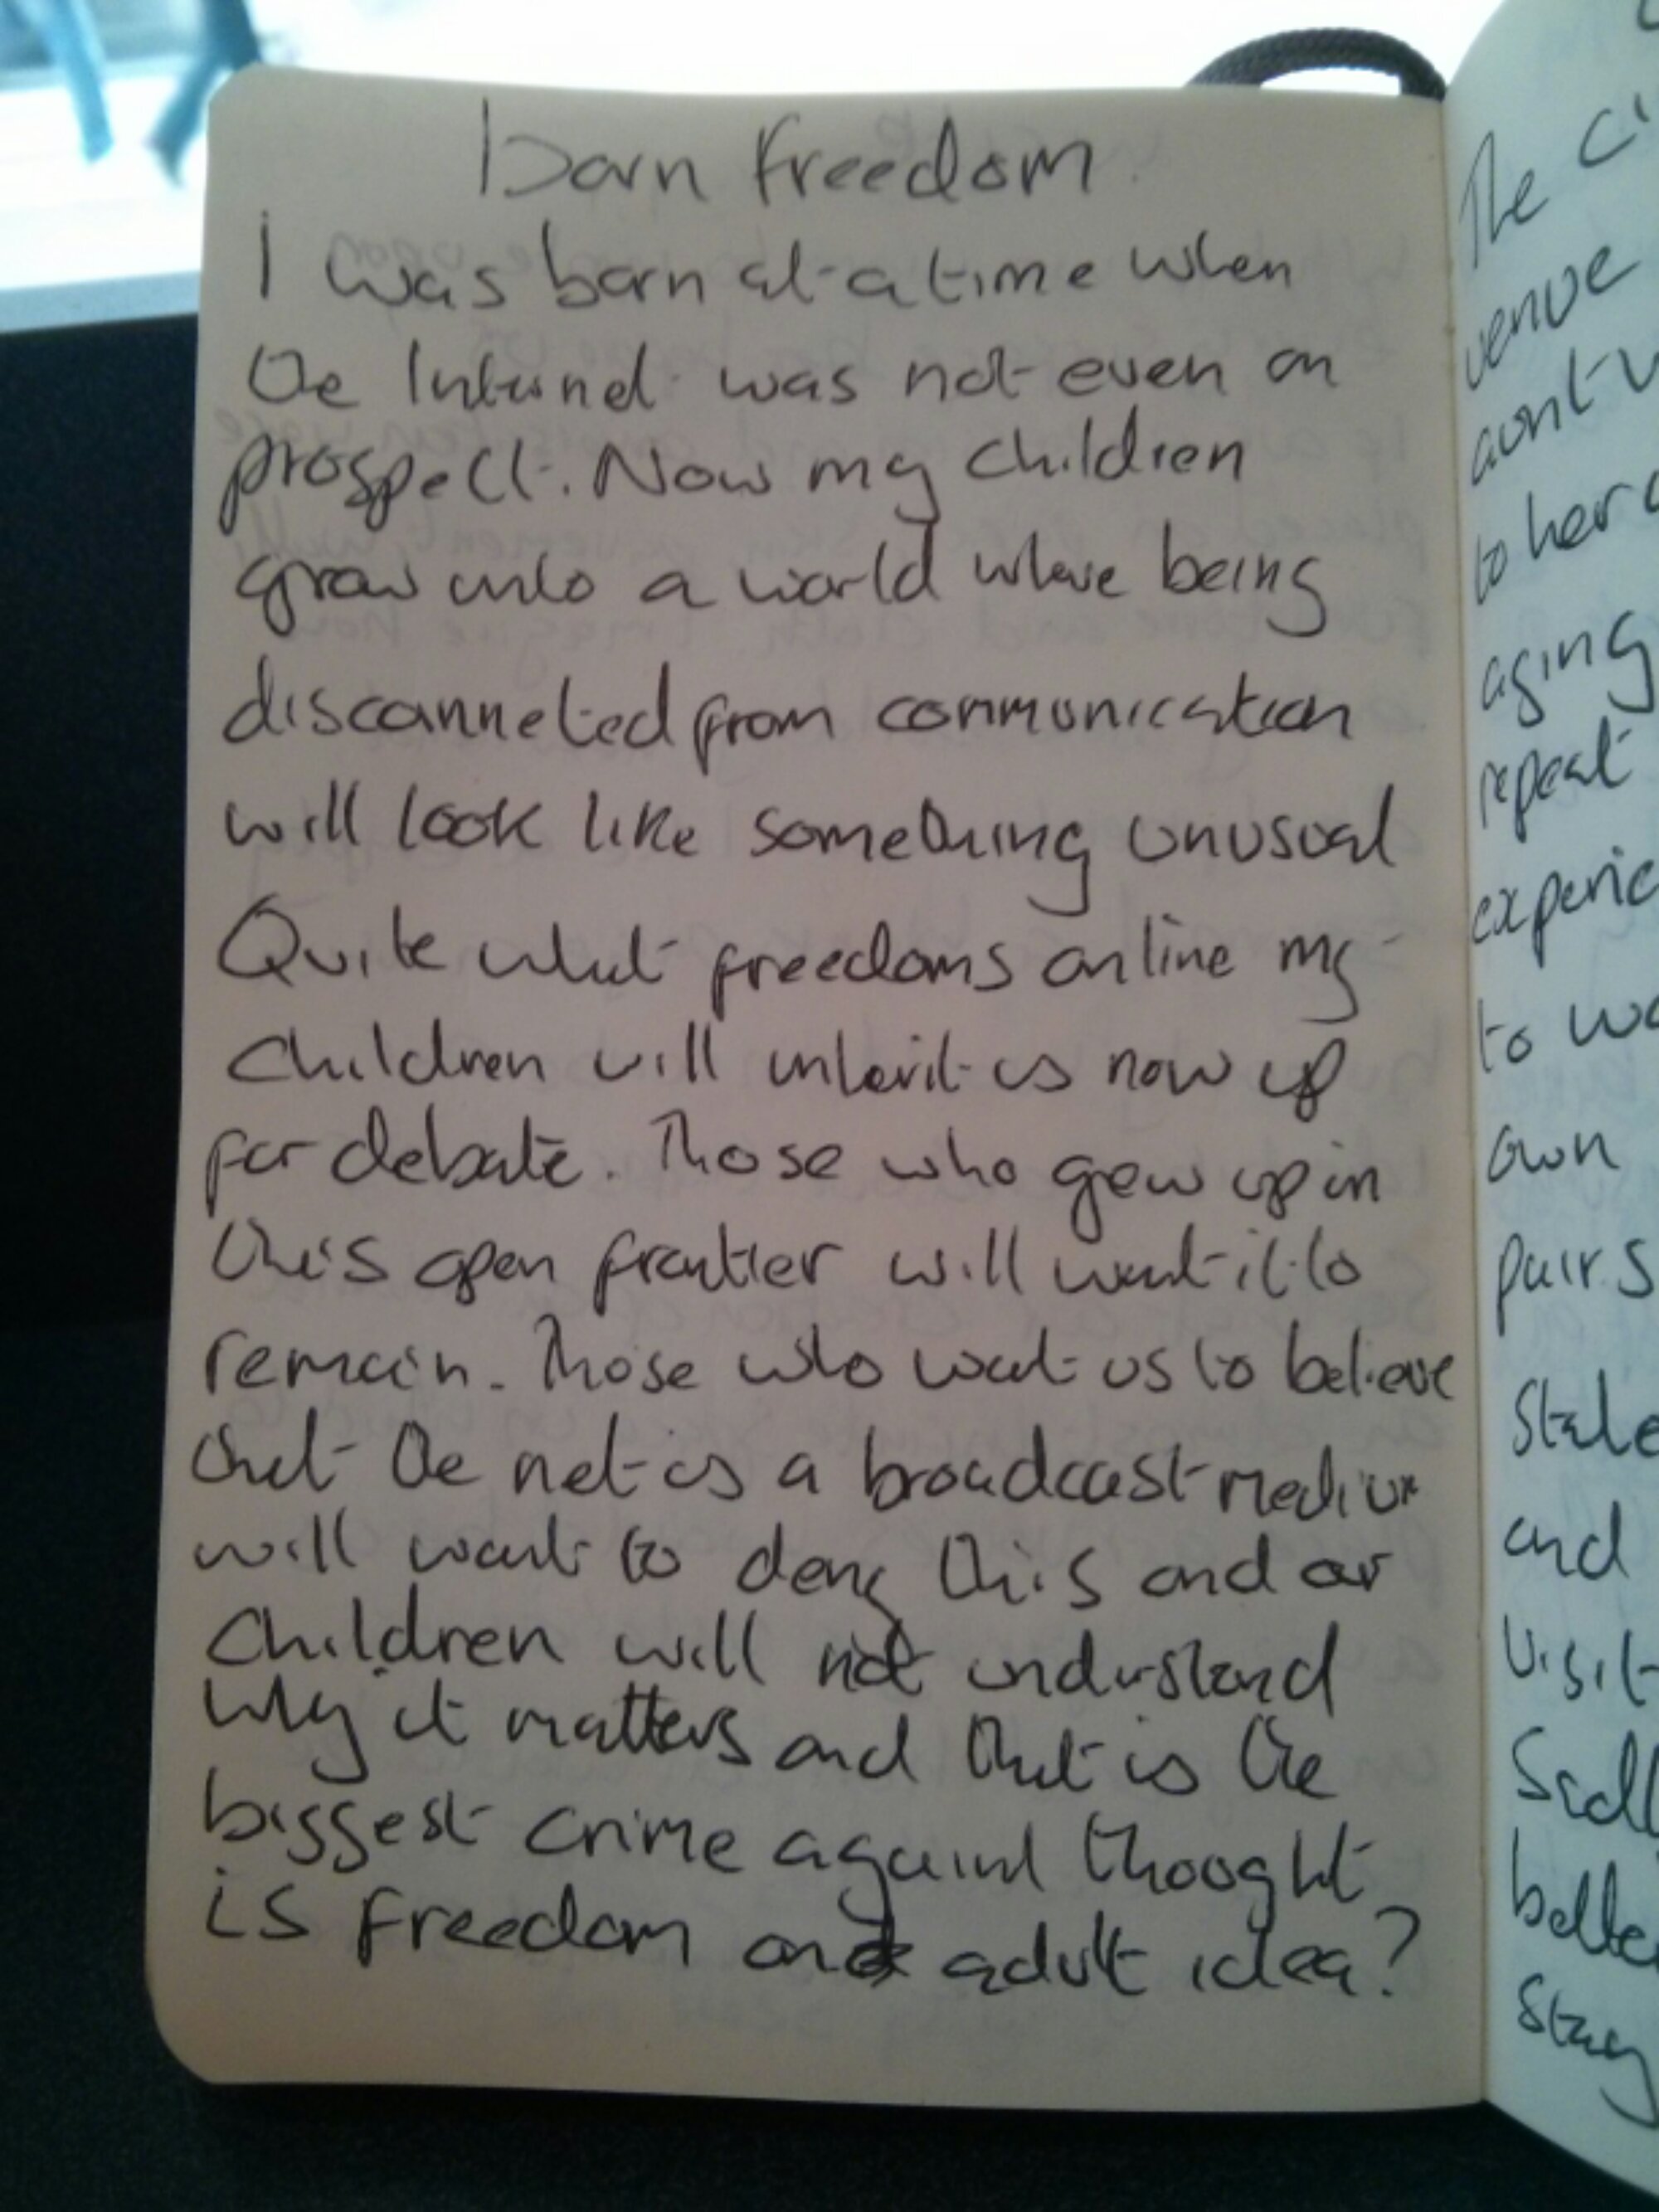 Born Freedom.
I was born at a time when
the Internet was not even on
prospect. Now my children
grow into a world where being
disconneted from communication
will look like something unusual
Quite what freedoms online my
children will inherit is now up
for debate. Those who grew up in
this open frontier will want it to
remain. Those who want us to believe
that the net is a broadcast medium
will want to deny this and our
children will not understand
why it matters and that is the
biggest crime against thought
is freedom and adult idea?
The
venue
aunt
to her
aging
repeat
to
own
pairs
and
visit